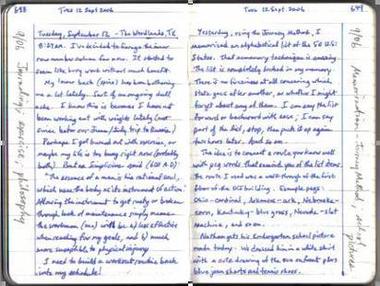 638
Tues 12 Sept 2006
Tuesday, September 12 - The Woodlands, TX
8:27AM. I've decided to forego the inner
row number system for now. It started to
seem like busy work without much benefit.
My lower back (spine) has been bothering
me a lot lately. Sort of an ongoing dull
ache. I know this is because I have not
been working out with weights lately (not
since before our June/July trip to Russia)
Perhaps I got burned out with exercise, or
maybe my life is too busy right now (probably
both). But as Confucius said
"The essence of a man is his rational soul,
which uses the body as its instrument of action."
Allowing the instrument to get rusty or broken
through lack of maintenance simply means
the workman (me) will be a) less effective
when reaching for my goals, and b) much
more susceptible to physical injury
I need to build a workout routine back
into my schedule!
9/06 Journaling, exercise, philosophy
Tues 12 Sept 2006
649
Yesterday, using the Journey Method, I
memorized an alphabetical list of the 50 U.S.
States. That memory technique is amazing
The list is completely locked in my memory.
There is no fuzziness at all concerning which
state goes after another, or whether I might
forget about any of them. I can say the list
forward or backward with ease, I can say
part of the list, stop, then pick it up again
two hours later. And so on.
The idea is to connect a route you know well
with peg words that remind you of the list items
the route I used was a walk through of the first
floor of the building. Example pegs:
Ohio-cardinal, Arkansas-ark, Nebraska-
corn, Kentucky-blue grass, Nevada-slot
machine, and so on.
Nathan gets his kindergarten school picture
made today. We dressed him in a white shirt
with a cute drawing of the sun on front plus
blue jean shorts and tennis shoes.
9/06 Memorization: Journey Method, school pictures